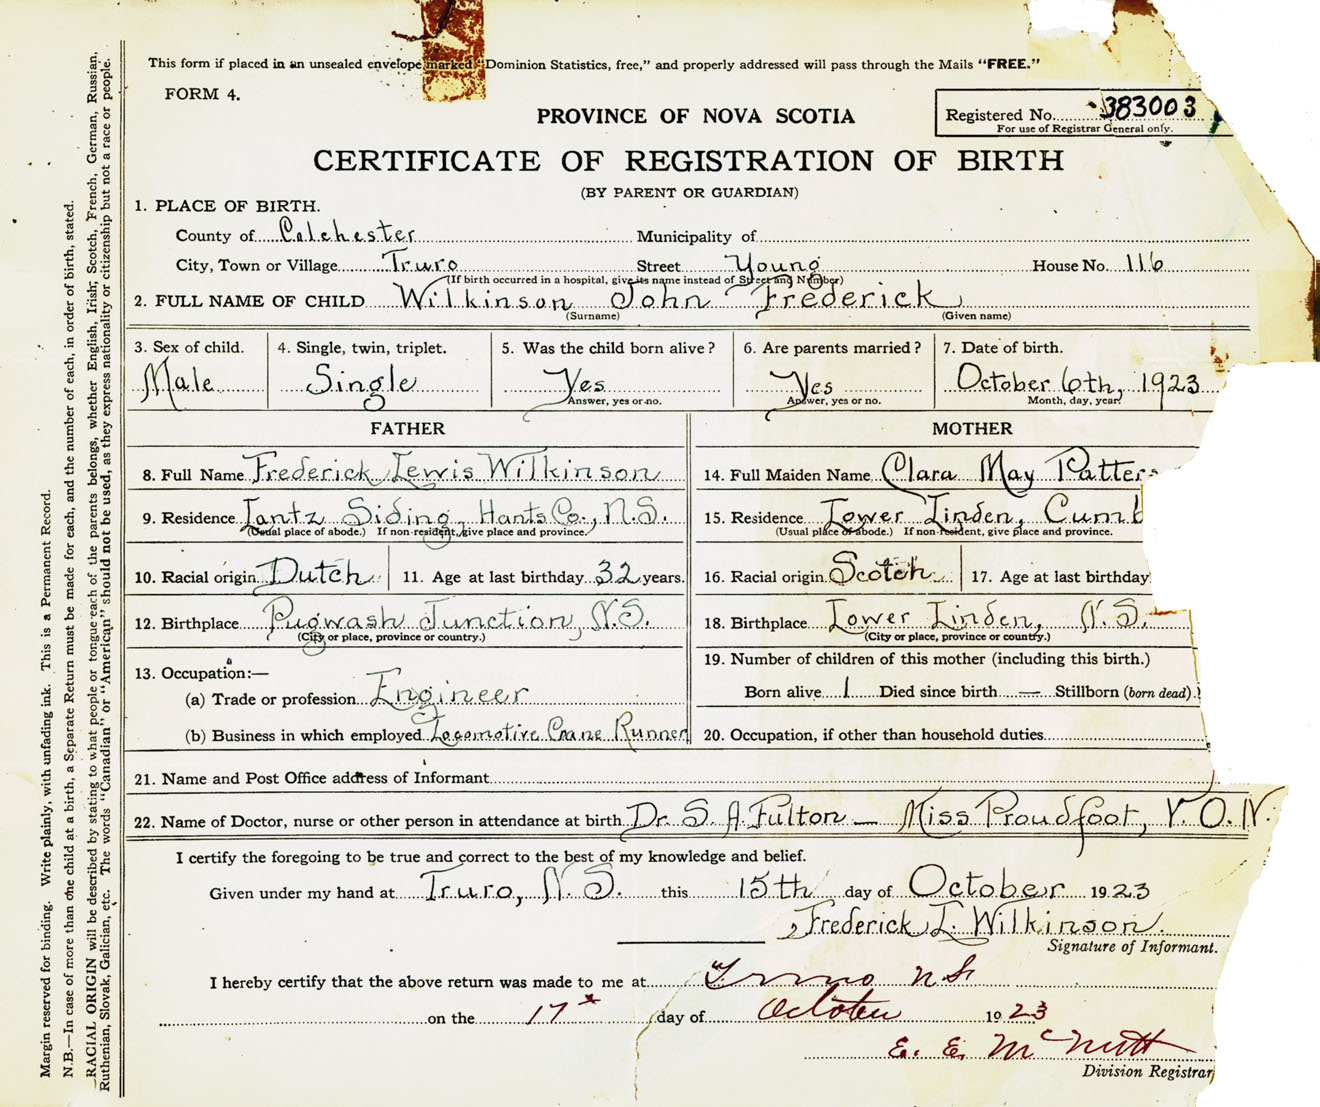 This form if placed in an unsealed envelope marked "Dominion Statistics, free," and properly addressed will pass through the Mails "FREE."
FORM 4.
Registered No. 383003
For use of Registrar General only.
PROVINCE OF NOVA SCOTIA
CERTIFICATE OF REGISTRATION OF BIRTH
(BY PARENT OR GUARDIAN)
1. PLACE OF BIRTH.
County of Colchester Municipality of
City, Town or Village Truro Street Young House No. 116
(If birth occurred in a hospital, give its name instead of Street and Number)
2. FULL NAME OF CHILD Wilkinson John Frederick
(Surname) (Given name)
3. Sex of child. 4. Single, twin, triplet. 5. Was the child born alive? 6. Are parents married? 7. Date of birth.
Male Single Yes Yes October 6th, 1923
Answer, yes or no. Answer, yes or no. Month, day, year.
FATHER
8. Full Name Frederick Lewis Wilkinson
9. Residence Lantz Siding, Hants Co., N.S.
(Usual place of abode.) If non-resident, give place and province.
10. Racial origin Dutch 11. Age at last birthday 32 years.
12. Birthplace Pugwash Junction, N.S.
(City or place, province or country.)
13. Occupation:—
(a) Trade or profession Engineer
(b) Business in which employed Locomotive Crane Runner
MOTHER
14. Full Maiden Name Clara May Patters
15. Residence Lower Linden, Cumb
(Usual place of abode.) If non-resident, give place and province.
16. Racial origin Scotch 17. Age at last birthday
18. Birthplace Lower Linden, N.S.
(City or place, province or country.)
19. Number of children of this mother (including this birth.)
Born alive 1 Died since birth — Stillborn (born dead)
20. Occupation, if other than household duties
21. Name and Post Office address of Informant
22. Name of Doctor, nurse or other person in attendance at birth Dr. S. A. Fulton — Miss Proudfoot, V.O.N.
I certify the foregoing to be true and correct to the best of my knowledge and belief.
Given under my hand at Truro, N.S. this 15th day of October 1923
Frederick L. Wilkinson.
Signature of Informant.
I hereby certify that the above return was made to me at Truro N.S.
on the 17th day of October 1923
E. E. McNutt
Division Registrar
Margin reserved for binding. Write plainly, with unfading ink. This is a Permanent Record.
N.B.—In case of more than one child at a birth, a Separate Return must be made for each, and the number of each, in order of birth, stated.
RACIAL ORIGIN will be described by stating to what people or tongue each of the parents belongs, whether English, Irish, Scotch, French, German, Russian,
Ruthenian, Slovak, Galician, etc. The words "Canadian" or "American" should not be used, as they express nationality or citizenship but not a race or people.